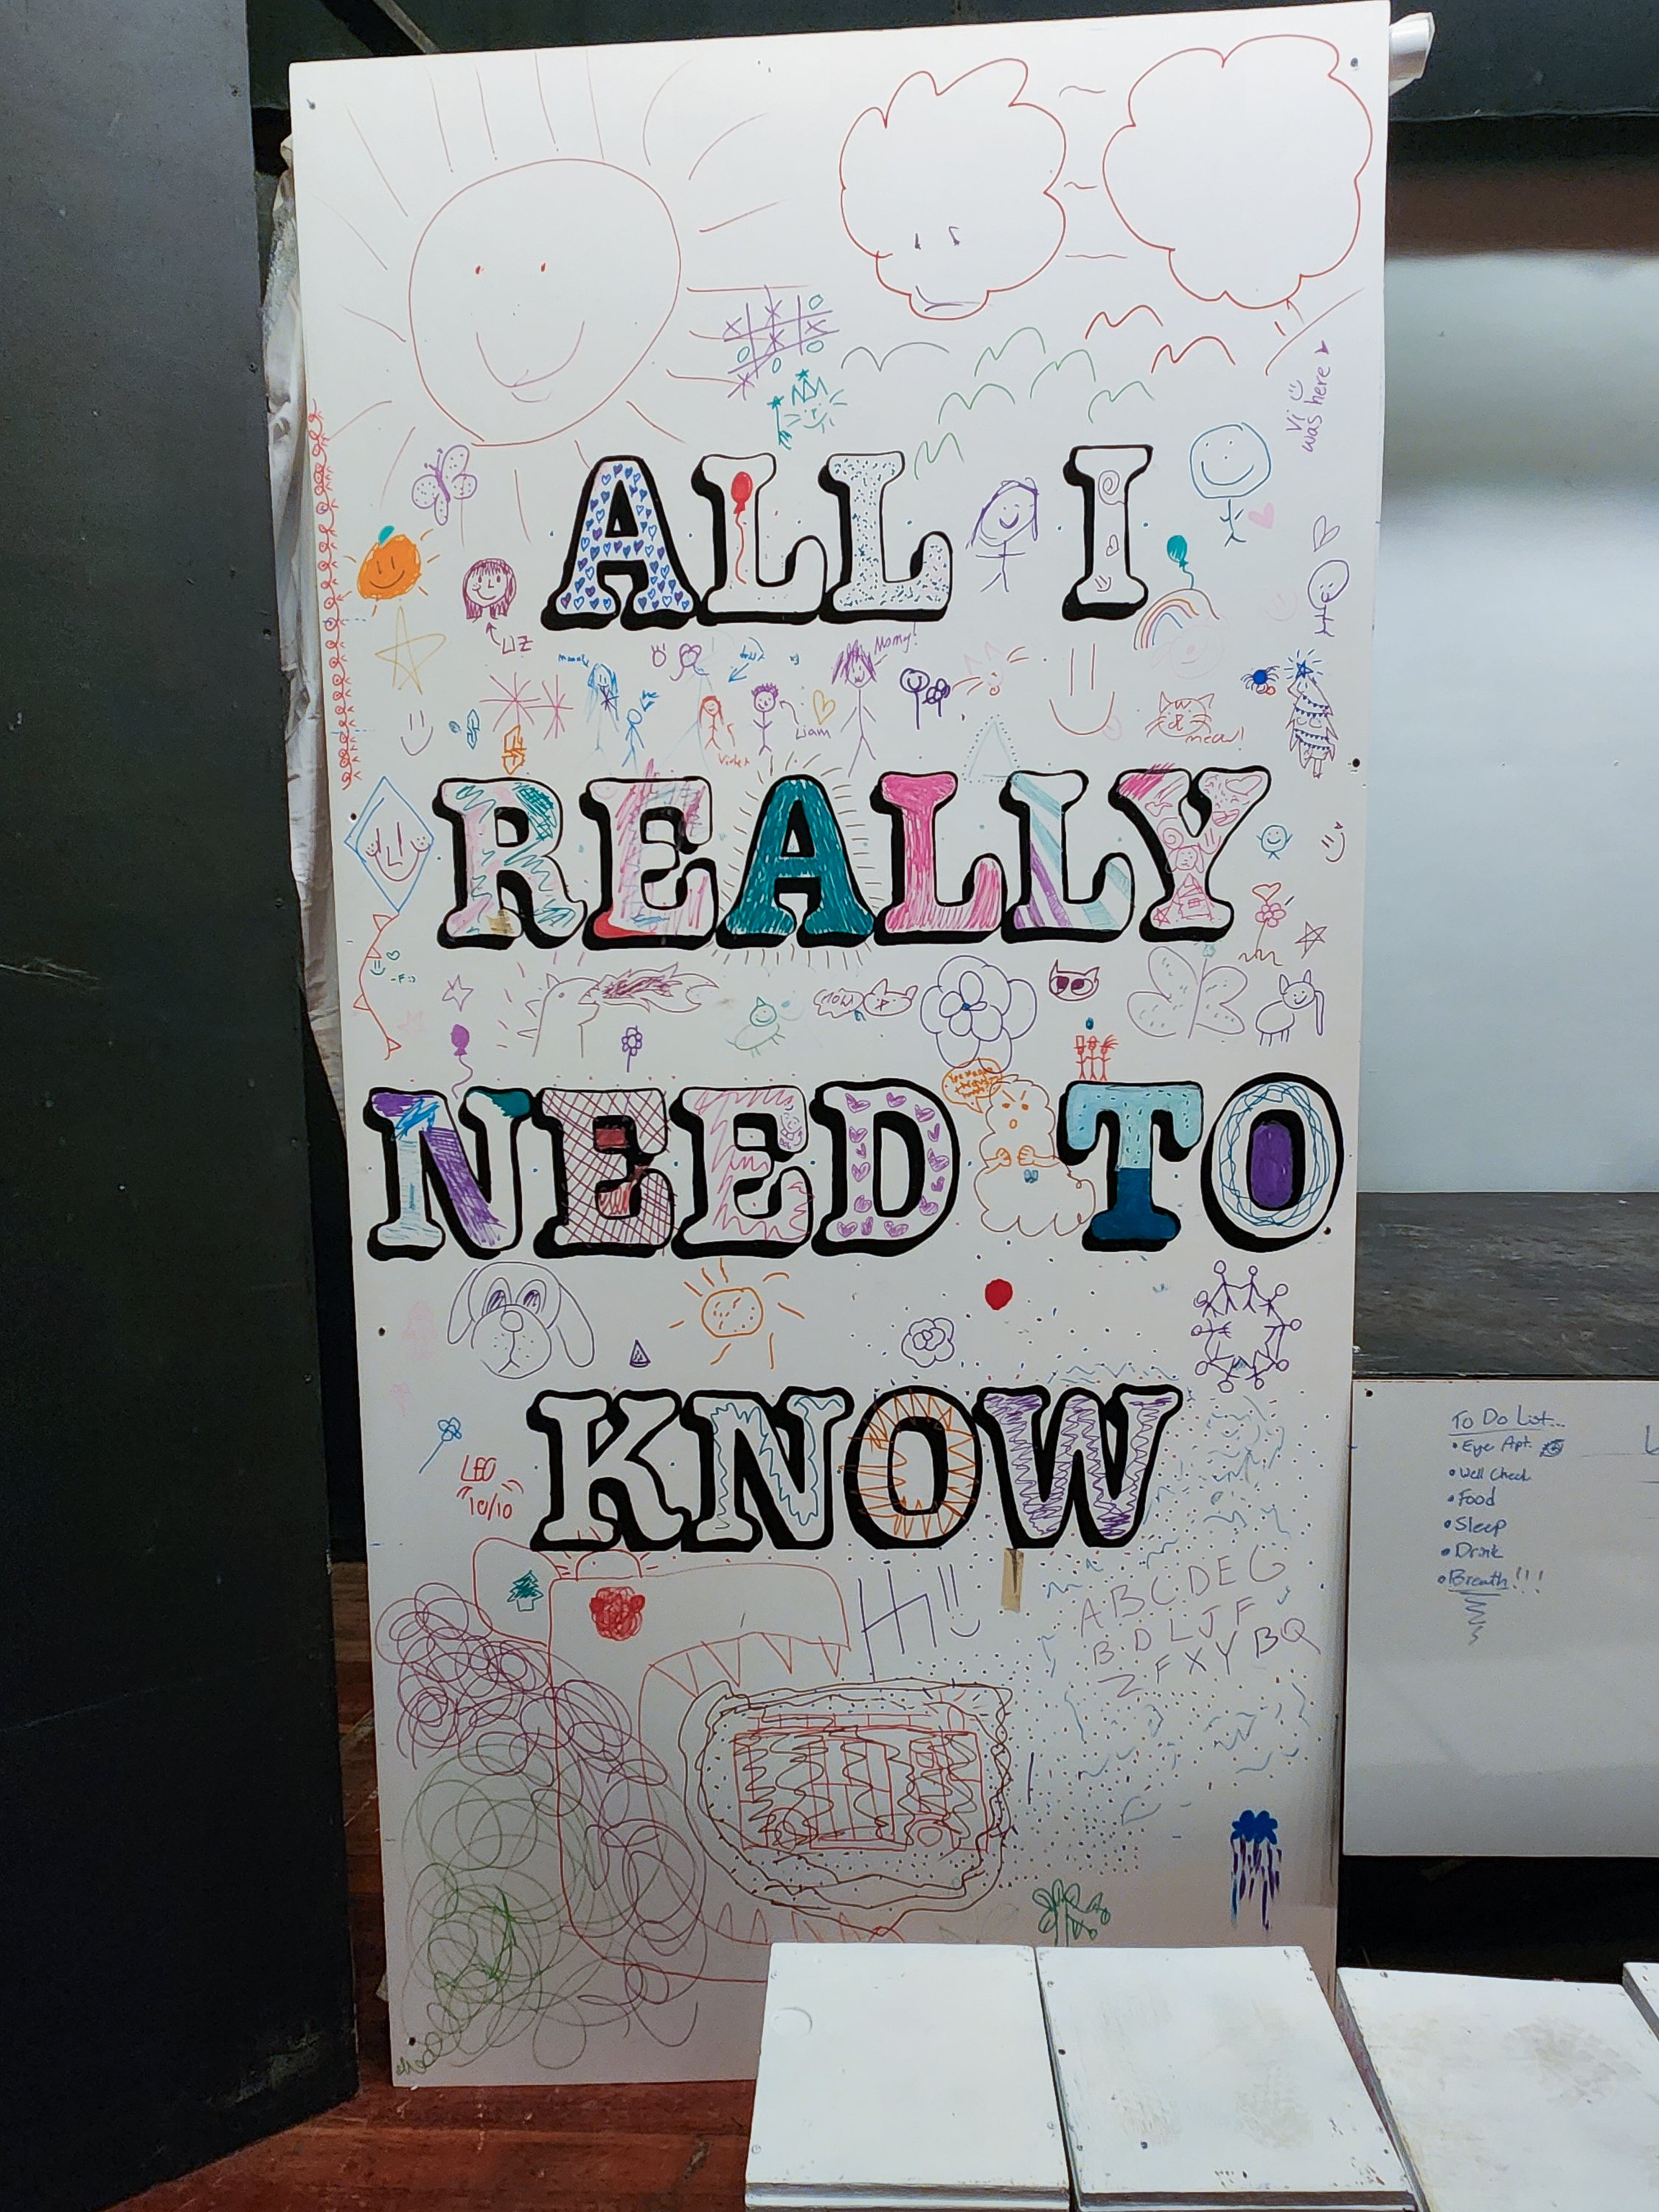 Vi
was here
ALL I
LIZ
Momy!
me
Liam
Violet
meow!
REALLY
NEED TO
KNOW
LEO
10/10
Hi!!
A B C D E G
B D L J F
Z F X Y B Q
To Do List...
• Eye Apt.
• Well Check
• Food
• Sleep
• Drink
• Breath!!!